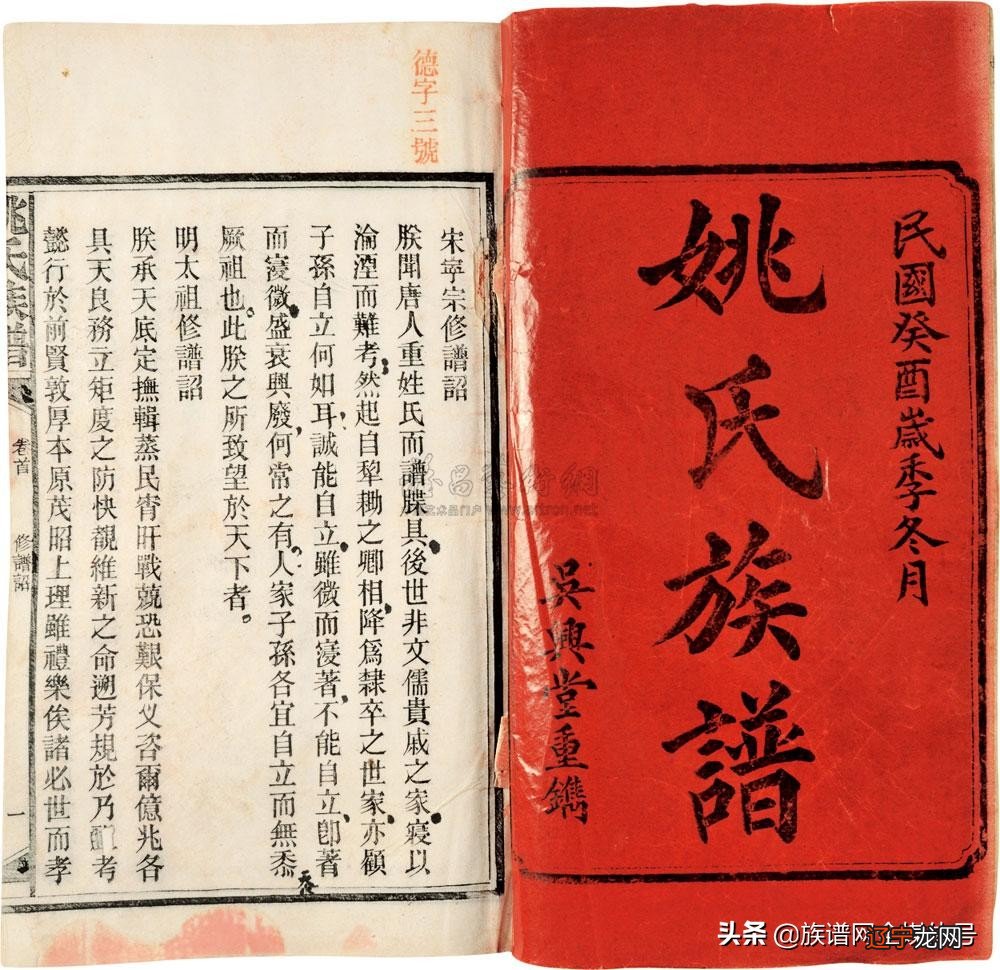 民國癸酉歲季冬月
姚氏族譜
吳興堂重鐫
德字三號
宋寧宗修譜詔
朕聞唐人重姓氏而譜牒具後世非文儒貴戚之家寖以
淪湮而難考然起自犁耡之卿相降爲隸卒之世家亦顧
子孫自立何如耳誠能自立雖微而寖著不能自立卽著
而寖微盛衰興廢何常之有人家子孫各宜自立而無忝
厥祖也此朕之所致望於天下者
明太祖修譜詔
朕承天底定撫輯蒸民宵旰戰兢恐艱保乂咨爾億兆各
具天良務立矩度之防快覩維新之命遡芳規於乃考
懿行於前賢敦厚本原茂昭上理雖禮樂俟諸必世而孝
姚氏族譜
卷首
修譜詔
一
www.artron.net
头条 @族谱网
辽宁龙网